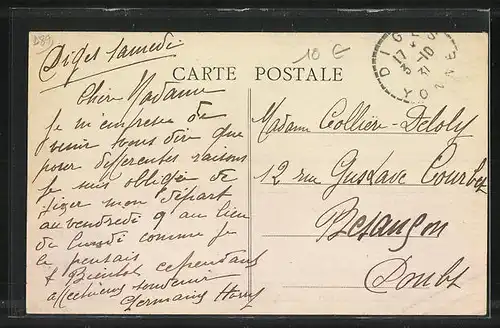 289
10 €
Diges samedi
DIGES
17 *
3-10
31
YONNE
CARTE POSTALE
Chère Madame
Je m'empresse de
venir vous dire que
pour différentes raisons
je suis obligée de
fixer mon départ
au vendredi 9 au lieu
de lundi comme je
le pensais
A Bientôt cependant
affectueux souvenir
Germaine
Madame Collière-Deloly
12 rue Gustave Courbet
Besançon
Doubs